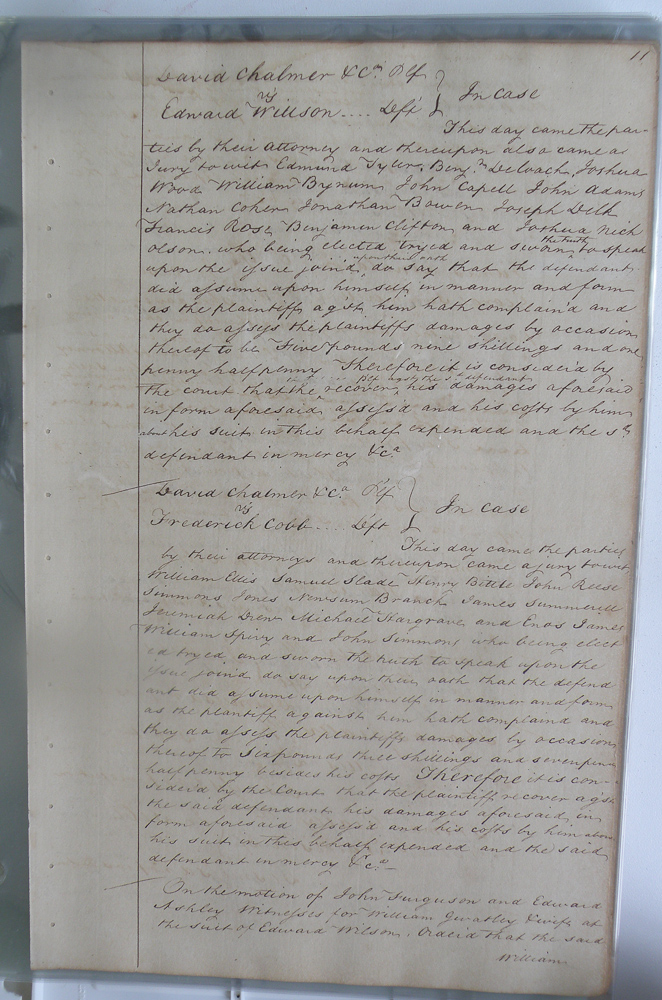 11
David Chalmer & Co. Plf
vs
In case
Edward Willson .... Deft
This day came the par-
ties by their attorney and thereupon also came a
Jury to wit Edmund Tyler, Benj.n Deloach, Joshua
Wood William Bynum John Capell John Adams
Nathan Coker Jonathan Bowen Joseph Delk
Francis Rose, Benjamin Clifton and Joshua Nich
olson, who being elected tryed and sworn the truth to speak
upon the issue join'd, upon their oath do say that the defendant
did assume upon himself in manner and form
as the plaintiff ag'st him hath complain'd and
they do assess the plaintiffs damages by occasion
thereof to be Five pounds nine shillings and one
penny halfpenny Therefore it is consider'd by
the court that the Plt recover ag'st the s.d defendant his damages aforesaid
in form aforesaid assess'd and his costs by him
about his suit in this behalf expended and the s.d
defendant in mercy &c.a
David Chalmer & Co. Plf
vs
In case
Frederick Cobb .... Deft
This day came the parties
by their attorneys and thereupon came a jury to wit
William Ellis Samuel Slade Henry Bittle John Reese
Simmons Jones Newsum Branch James Summerell
Jeremiah Drew Michael Hargrave and Enos James
William Spivy and John Simmons who being elect
ed tryed and sworn the truth to speak upon the
issue join'd do say upon their oath that the defend
ant did assume upon himself in manner and form
as the plantiff against him hath complaind and
they do assess the plaintiffs damages by occasion
thereof to Six pounds three shillings and sevenpence
halfpenny besides his costs Therefore it is con-
sider'd by the Court that the plaintiff recover ag'st
the said defendant his damages aforesaid in
form aforesaid assess'd and his costs by him about
his suit in this behalf expended and the said
defendant in mercy &c.a
On the motion of John Furguson and Edward
Ashley Witnesses for William Gwatley & wife at
the suit of Edward Wilson. Order'd that the said
William